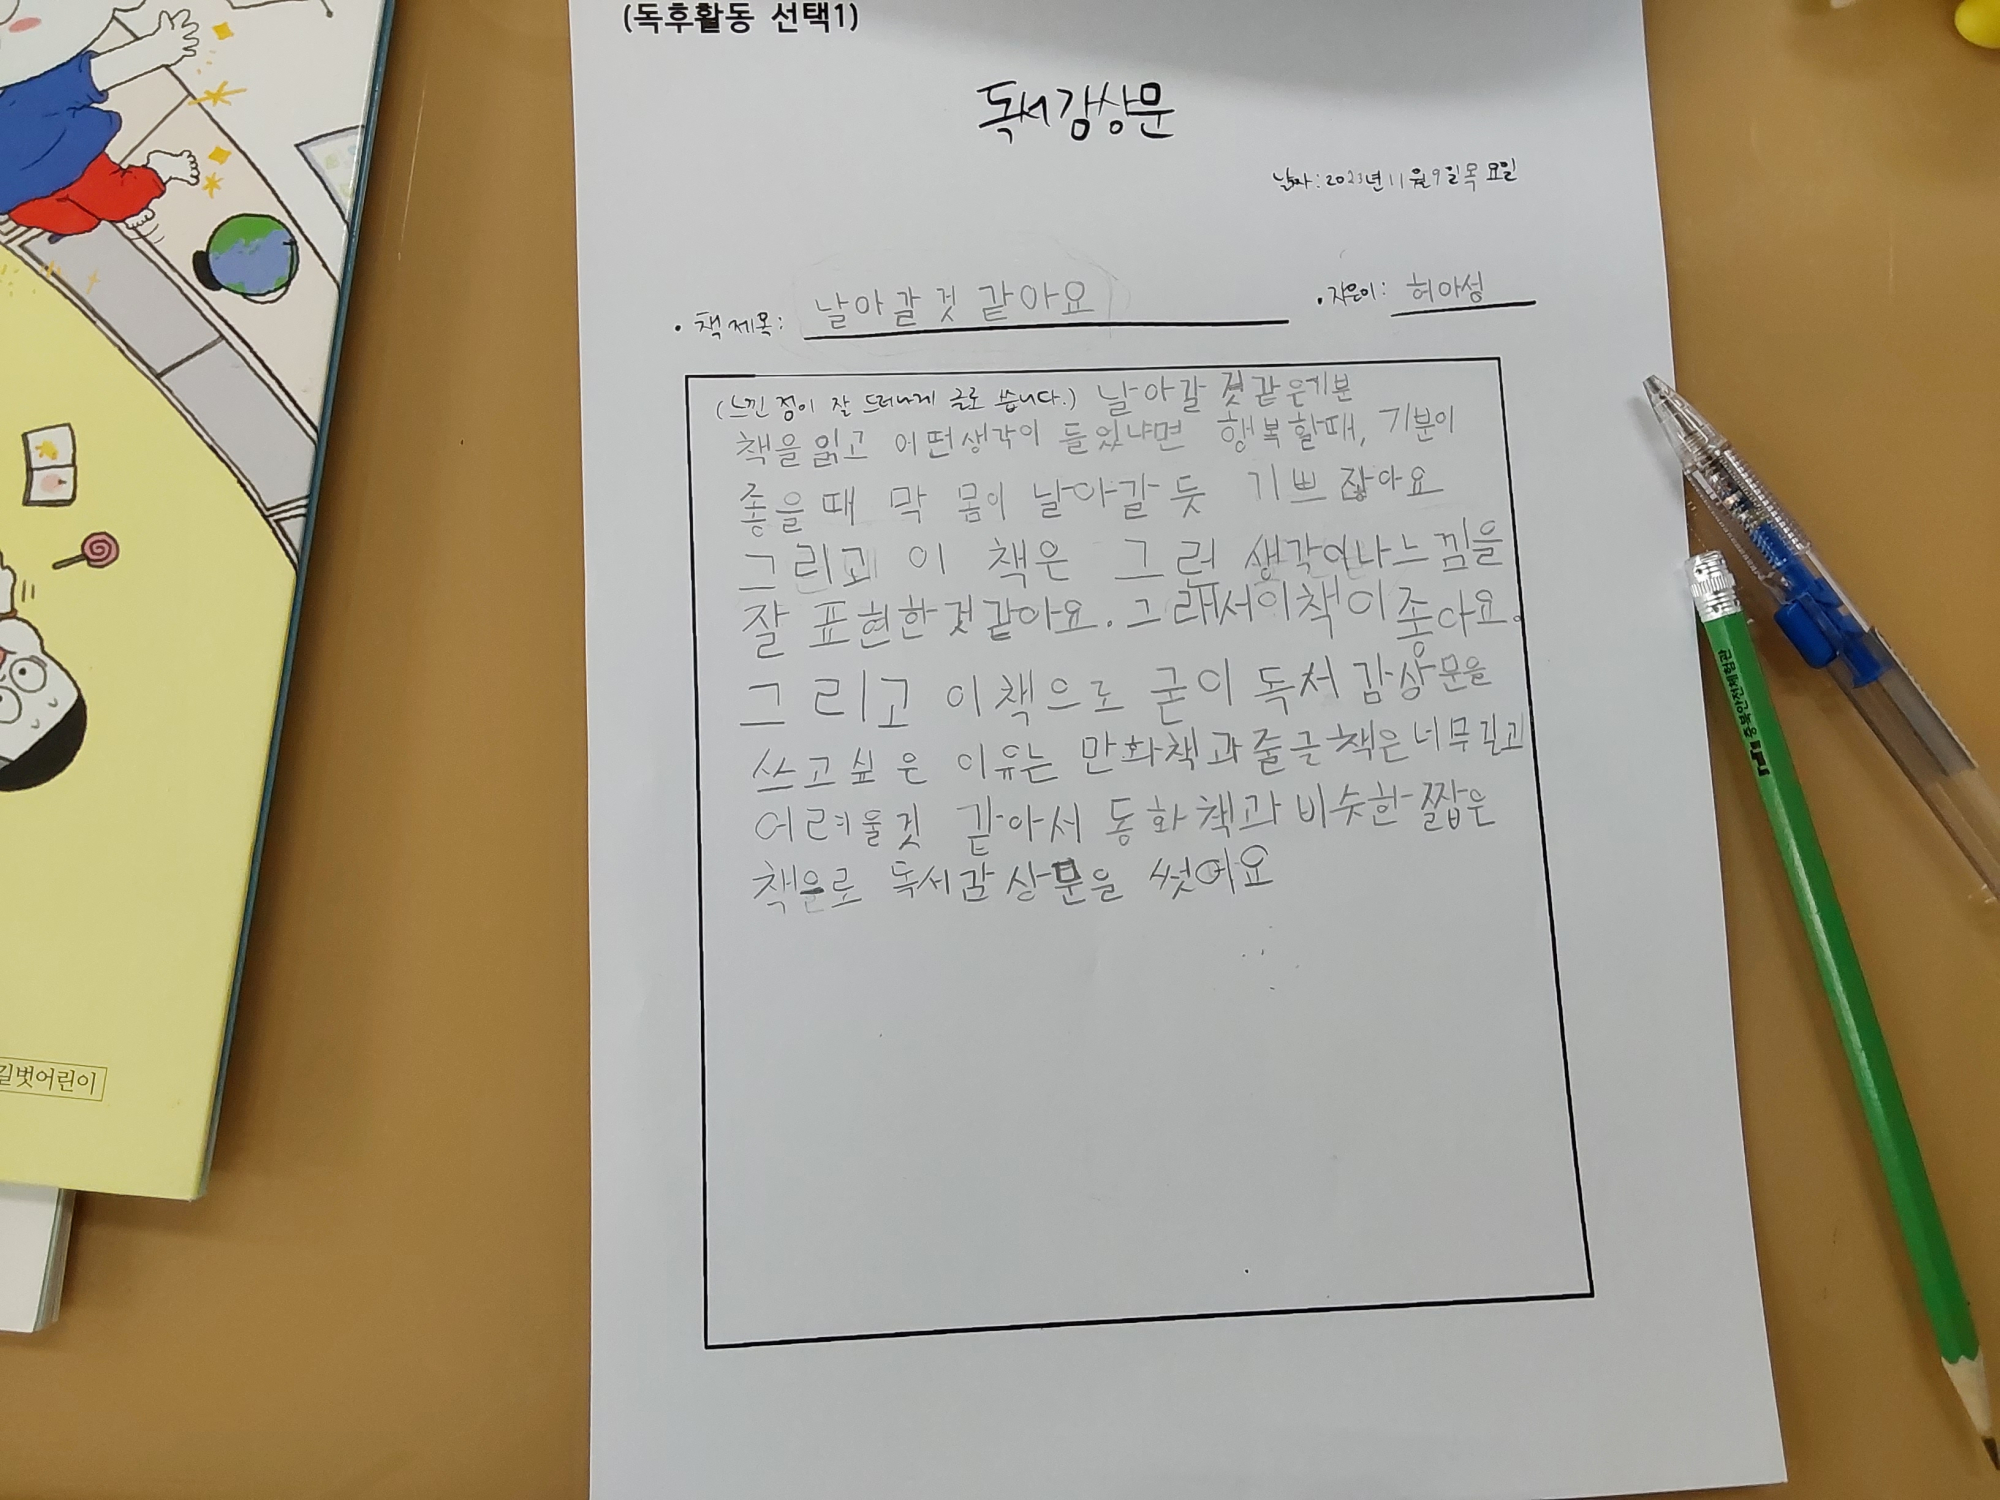 (독후활동 선택1)
독서감상문
날짜: 2023년 11월 9일 목요일
• 책 제목: 날아갈 것 같아요
• 지은이: 허아성
(느낀 점이 잘 드러나게 글로 씁니다.) 날아갈 것같은기분
책을 읽고 어떤생각이 들었냐면 행복할때, 기분이
좋을때 막 몸이 날아갈 듯 기쁘잖아요
그리고 이 책은 그런 생각이나느낌을
잘 표현한것같아요. 그래서이책이좋아요.
그리고 이책으로 굳이 독서 감상문을
쓰고싶은 이유는 만화책과줄글책은너무길고
어려울것 같아서 동화책과비슷한짧은
책으로 독서감상문을 썻어요
길벗어린이
충북안전체험관